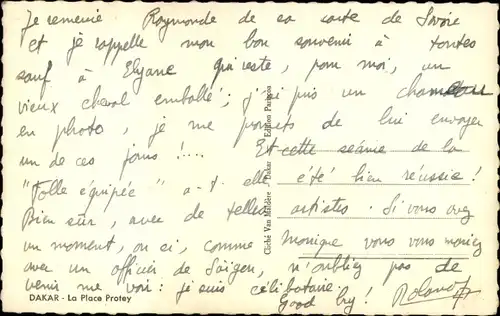 Je remercie Raymonde de sa carte de Savoie
et je rappelle mon bon souvenir à toutes
sauf à Elyane qui reste, pour moi, un
vieux cheval emballé ; j'ai pris un chameau
en photo, je me promets de lui envoyer
un de ces jours !...
Et cette séance de la
"Folle équipée" a-t-elle été bien réussie !
Bien sûr, avec de telles artistes. Si vous avez
un moment, ou si, comme Monique vous vous mariez
avec un officier de Saïgon, n'oubliez pas de
venir me voir : je suis célibataire.
Good bye ! Roland
DAKAR - La Place Protey
Cliché Van Maldère, Dakar Edition Paris